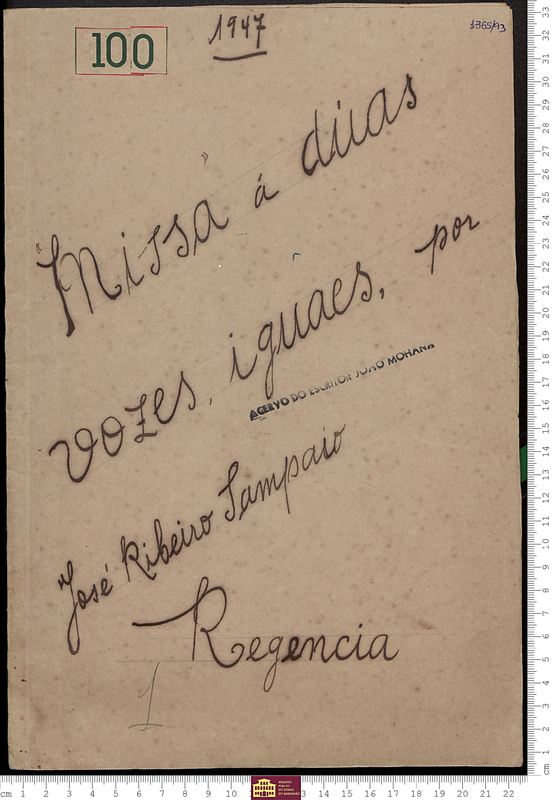 1947
100
1365/93
Missa á dúas
vozes, iguaes, por
ACERVO DO ESCRITOR JOÃO MOHANA
José Ribeiro Sampaio
Regencia
1
cm 1 2 3 4 5 6 7 8 9 10 11 12 13 14 15 16 17 18 19 20 21 22
ARQUIVO PÚBLICO DO ESTADO DO MARANHÃO
cm 1 2 3 4 5 6 7 8 9 10 11 12 13 14 15 16 17 18 19 20 21 22 23 24 25 26 27 28 29 30 31 32 33